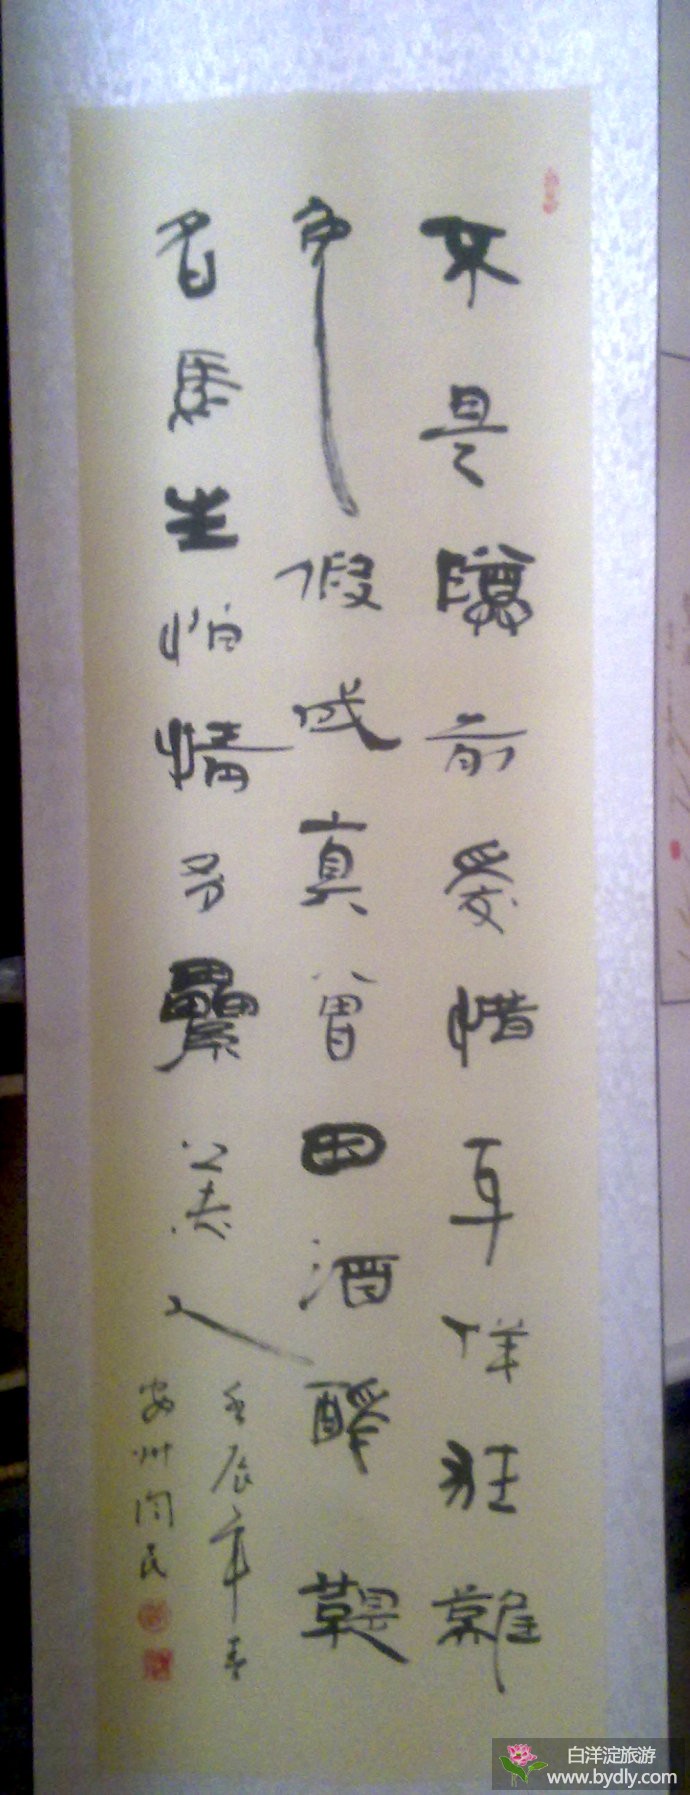 不是罇前愛惜身佯狂難
免假成真曾因酒醉鞭
名馬生怕情多纍美人
壬辰年春
安州闫民
白洋淀旅游
www.bydly.com